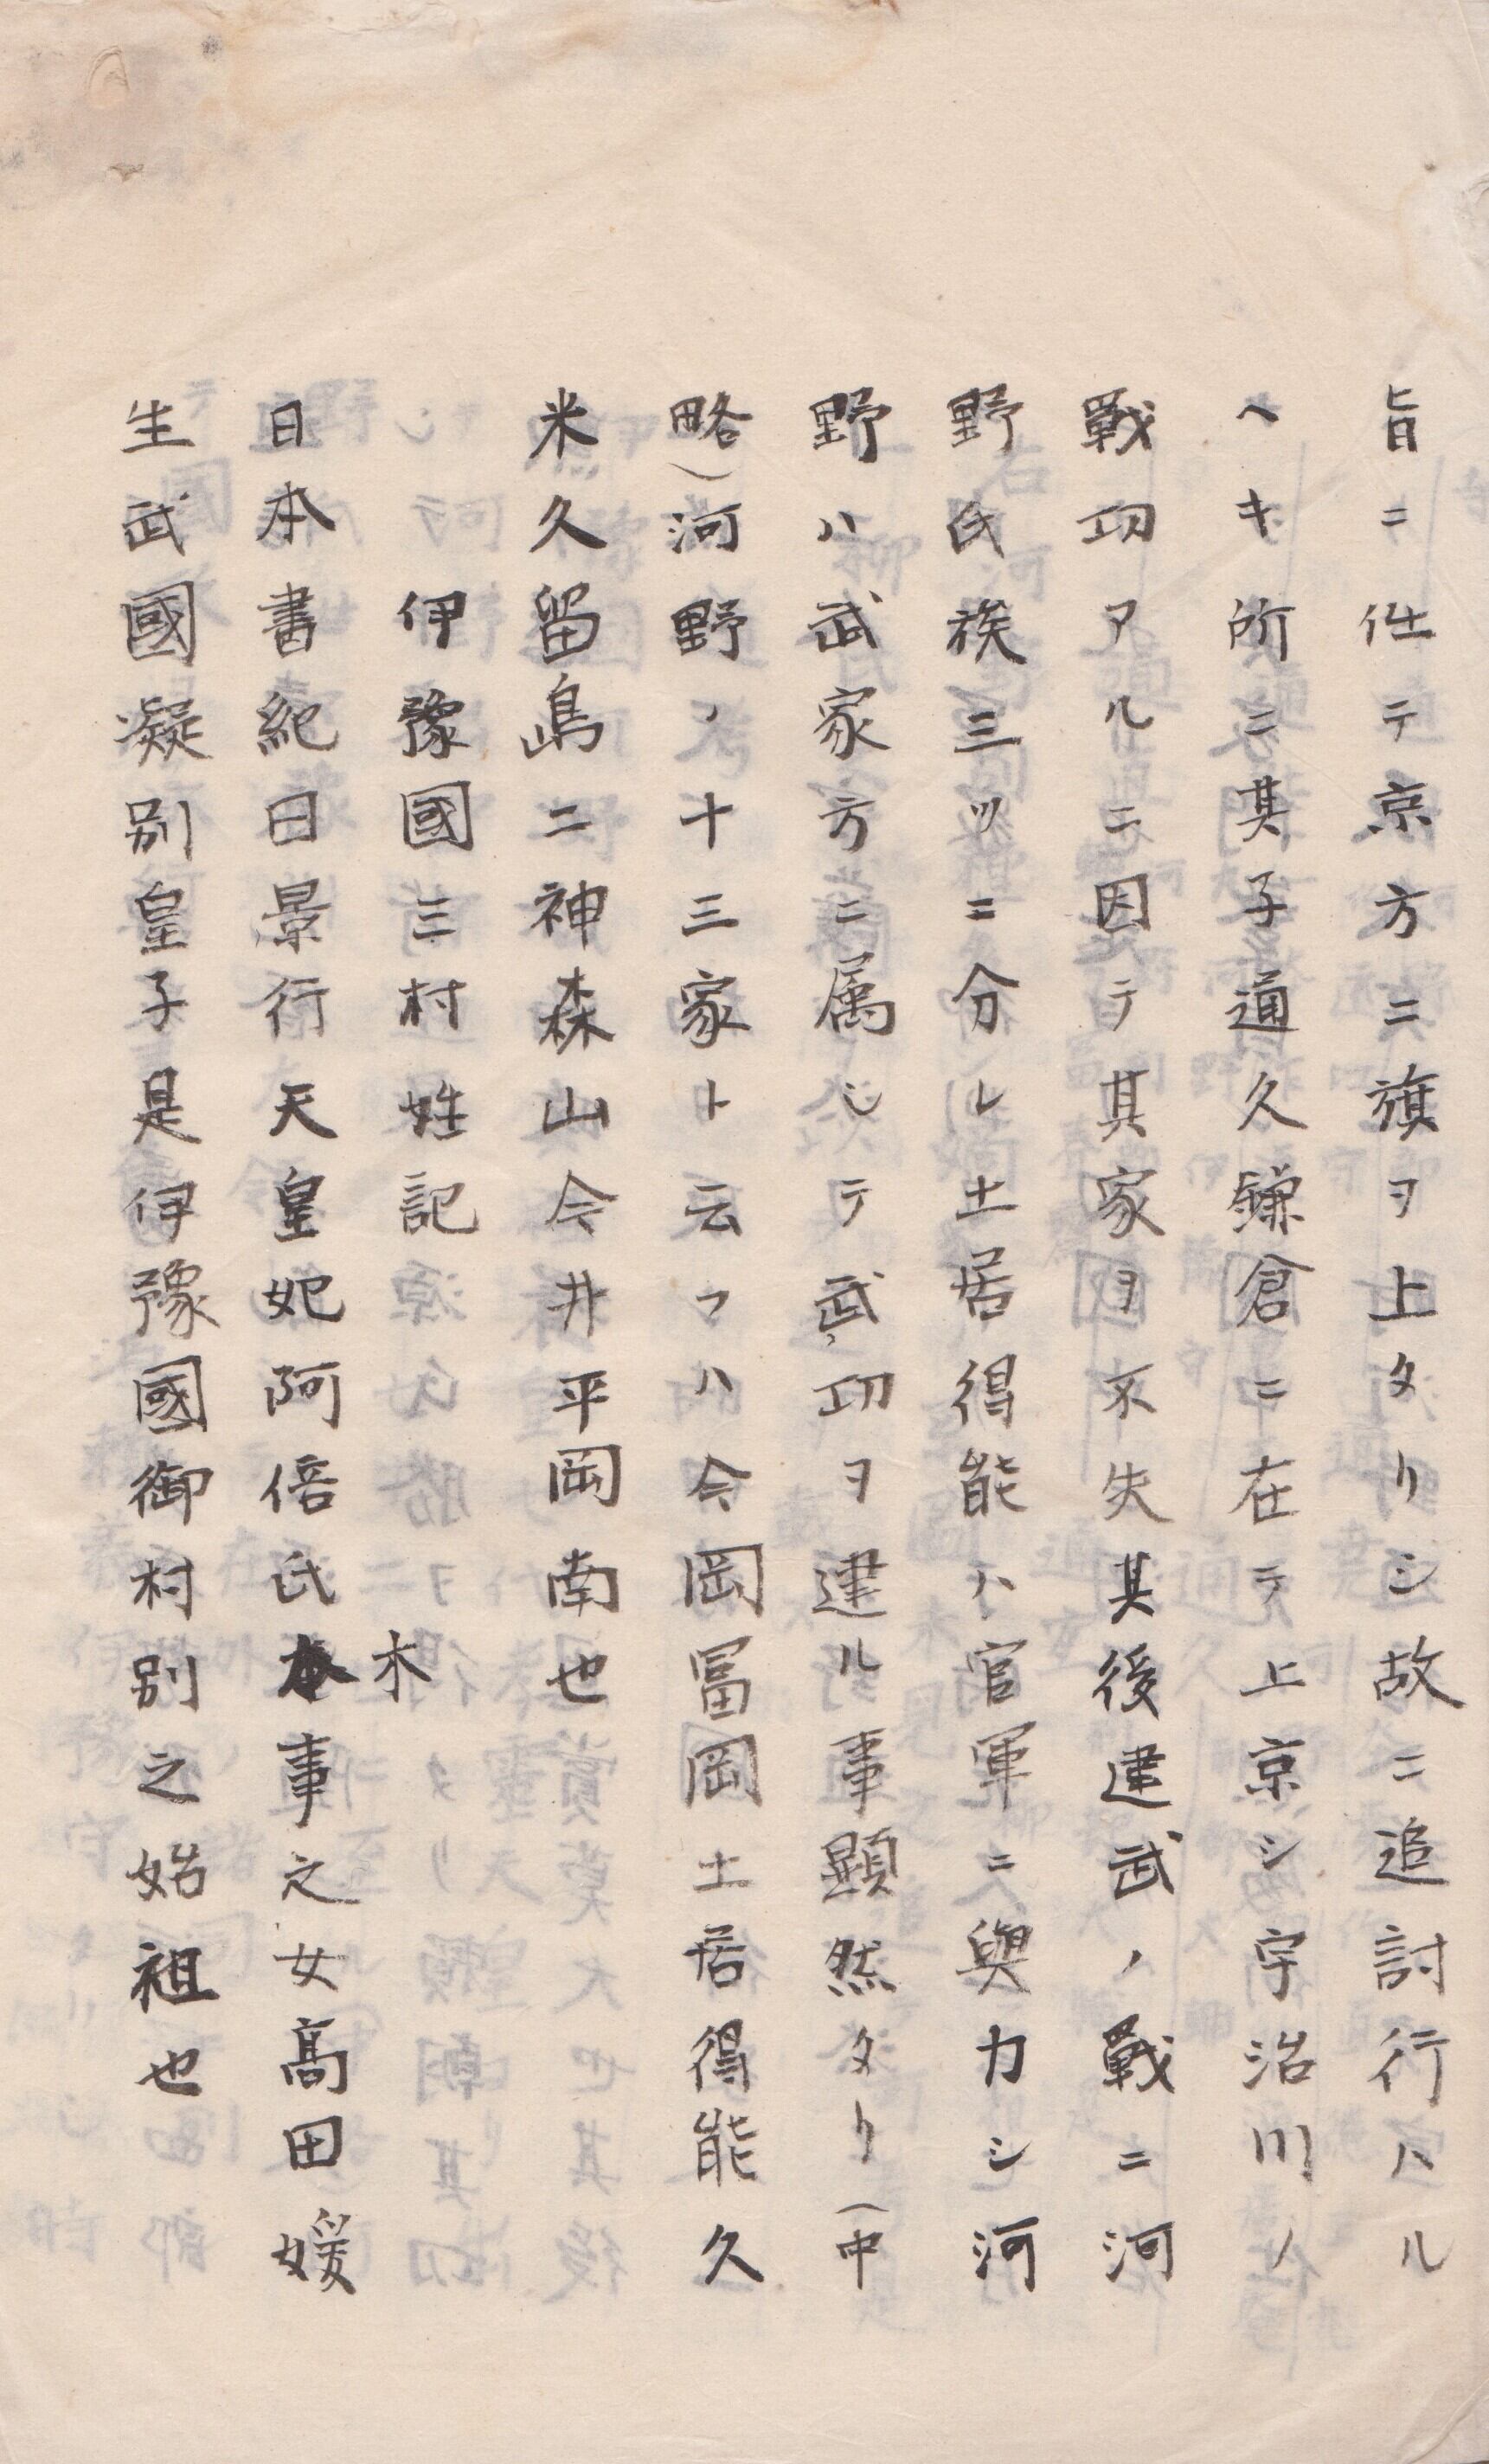 旨ニ仕テ京方ニ旗ヲ上タリシ故ニ追討行ハル
ヘキ所ニ其子通久鎌倉ニ在テ上京シ宇治川ノ
戰功アルニ因テ其家ヲ不失其後建武ノ戰ニ河
野氏族三ツニ分レ土居得能ハ官軍ニ與力シ河
野ハ武家方ニ属シテ武功ヲ建ル事顯然タリ(中
略)河野ノ十三家ト云フハ今岡冨岡土居得能久
米久留嶋二神森山今井平岡南也
伊豫國三村姓記
日本書紀曰景行天皇妃阿倍氏木事之女髙田媛
生武國凝別皇子是伊豫國御村別之始祖也